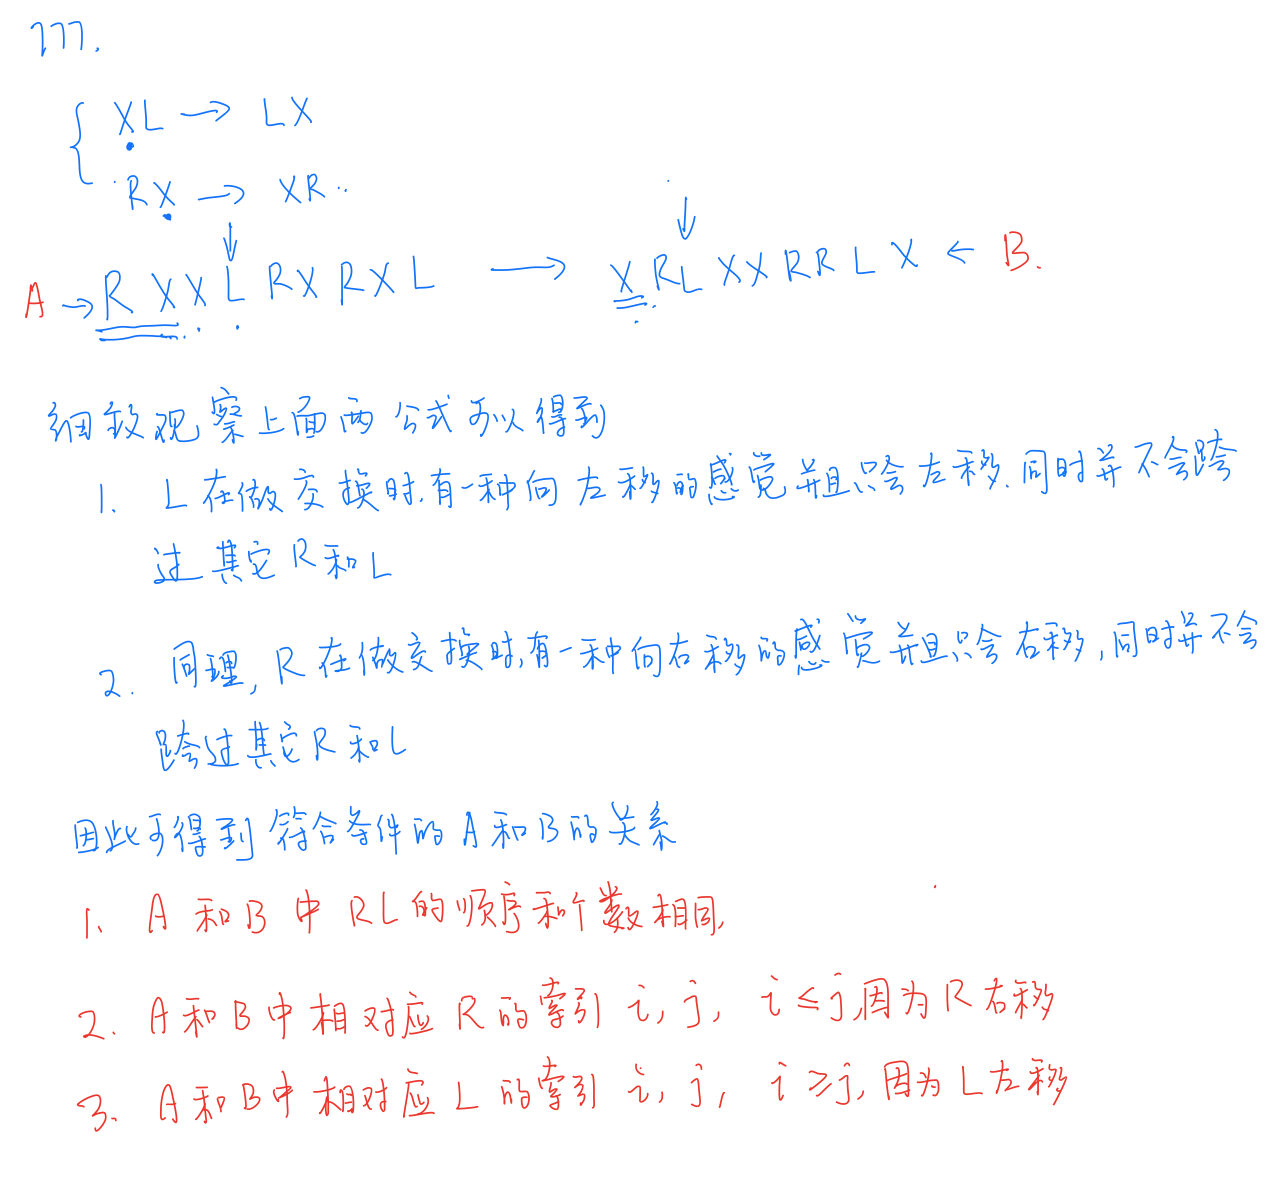 777.
XL → LX
RX → XR..
A → RXXLRXRXL → XRLXXRRLX ← B.
细致观察上面两公式可以得到
1. L在做交换时,有一种向左移的感觉并且只会左移.同时并不会跨
过其它R和L
2. 同理, R在做交换时,有一种向右移的感觉并且只会右移,同时并不会
跨过其它R和L
因此可得到符合条件的A和B的关系
1、A和B中RL的顺序和个数相同,
2. A和B中相对应R的索引i, j, i≤j,因为R右移
3. A和B中相对应L的索引i, j, i≥j,因为L左移